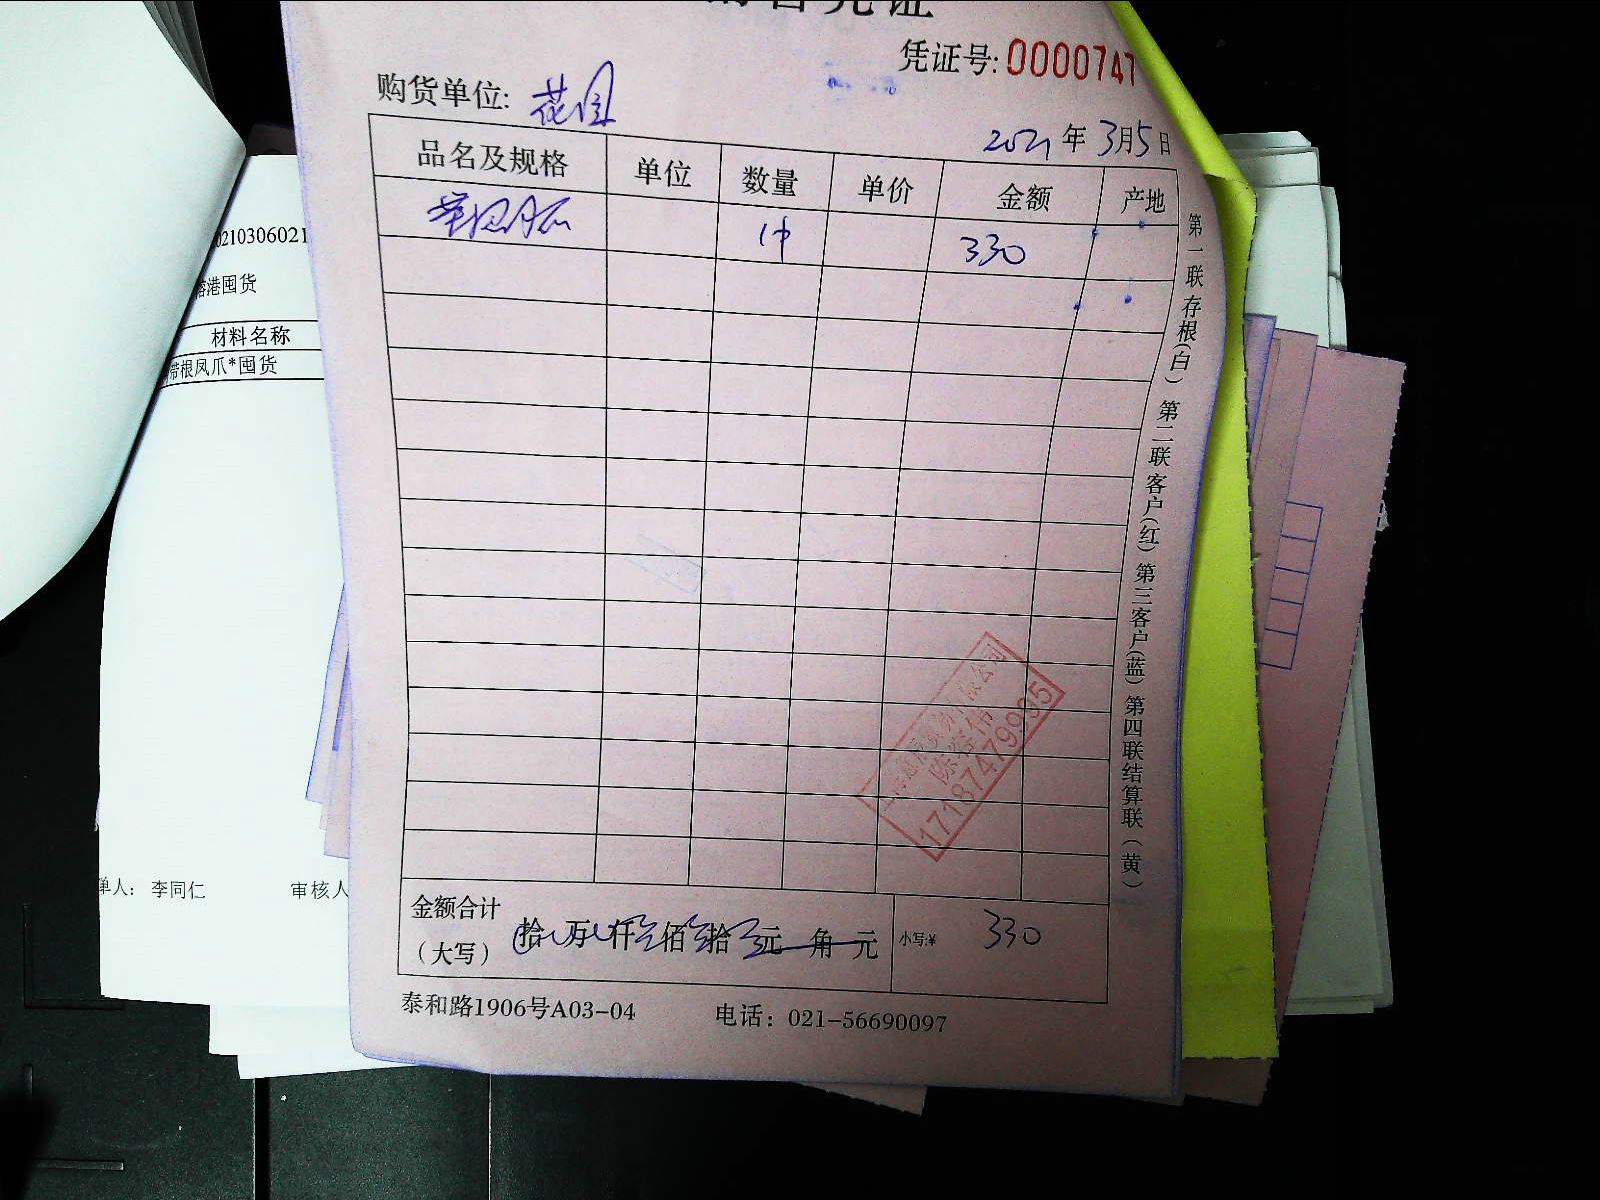 售凭证
凭证号: 0000747
购货单位: 花园
2021年3月5日
品名及规格 单位 数量 单价 金额 产地
1件 330
第一联存根(白) 第二联客户(红) 第三客户(蓝) 第四联结算联(黄)
17187479995
金额合计
(大写) 拾 万 仟 佰 拾 元 角 元 小写:¥ 330
泰和路1906号A03-04 电话: 021-56690097
0210306021
港囤货
材料名称
带根凤爪*囤货
单人: 李同仁 审核人